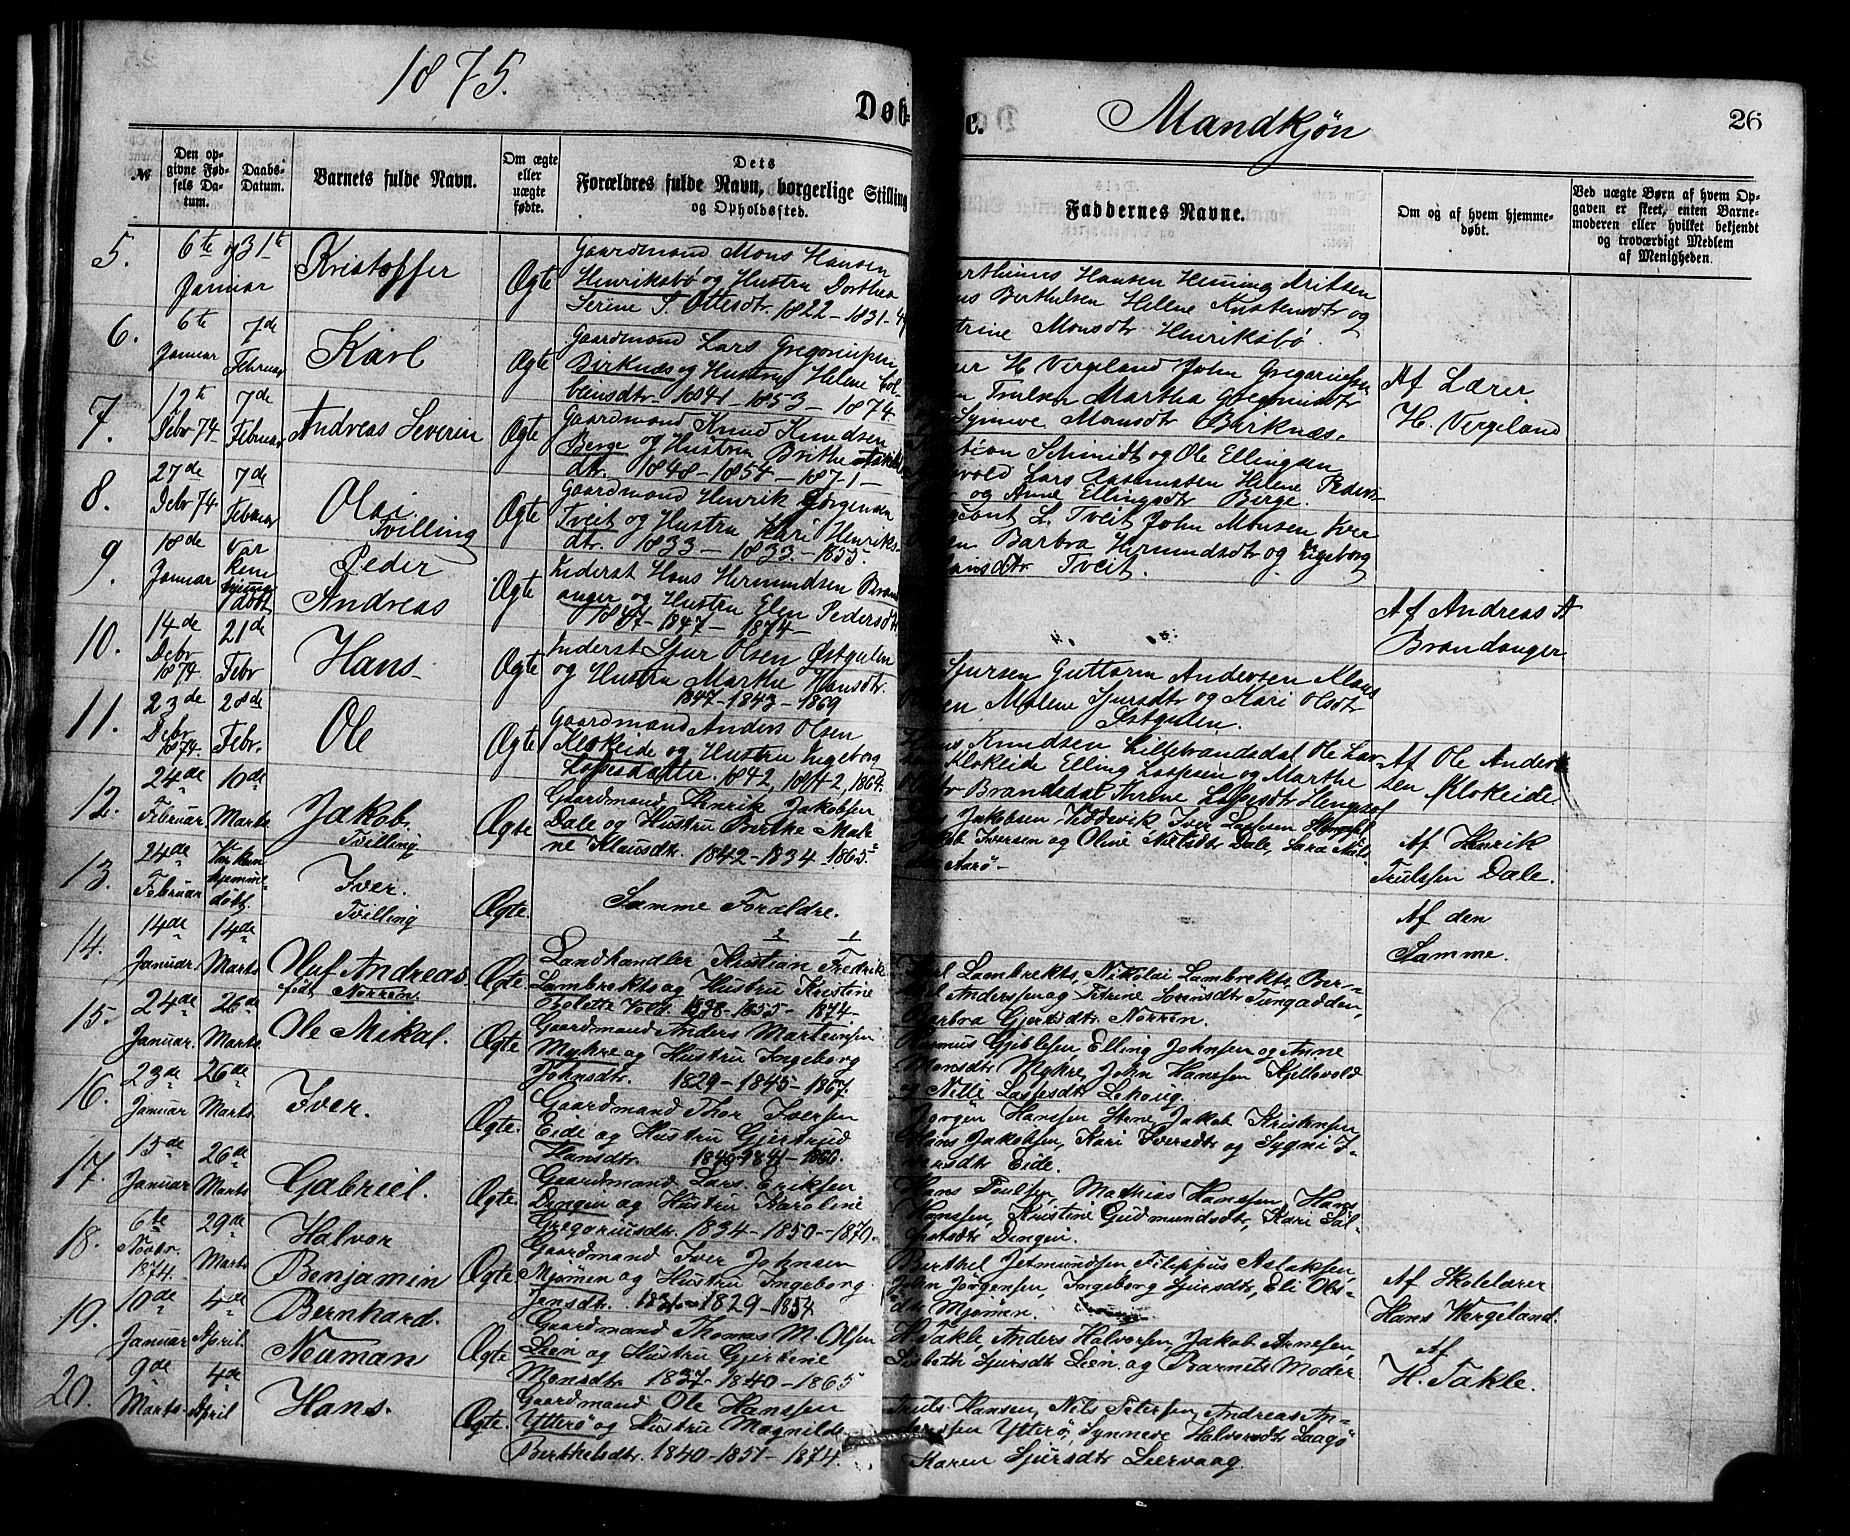 1875.
Døb-
e.
Mandkjøn
26
№
Den opgivne Fødsels Datum.
Daabs-Datum.
Barnets fulde Navn.
Om ægte eller uægte fødte.
Dets Forældres fulde Navn, borgerlige Stilling og Opholdssted.
Faddernes Navne.
Om og af hvem hjemmedøbt.
Ved uægte Børn af hvem Opgaven er skeet, enten Barnemoderen eller hvilket bekjendt og troværdigt Medlem af Menigheden.
5.
6te og 31te
Januar
Kristoffer
Ægte
Gaardmand Mons Hansen
Henriksbø og Hustru Dorthea
Serine T. Ottesdtr. 1822 – 1831 –
Hansen Henning
Berthelsen Helene og
trine Monsdtr Henriksbø.
6.
6te Januar
7de Februar
Karl
Ægte
Gaardmand Lars Gregoriussen
Birknæs og Hustru Helene Col-
bansdtr. 1841 – 1853 – 1874.
H Vergeland John Gregoriussen
Martha Gregoriusdtr
Synneve Monsdtr Birknæs.
Af Lærer
H. Vergeland
7.
12te Debr 74
7de Februar
Andreas Severin
Ægte
Gaardmand Knud Knudsen
Berge og Hustru Brithe
dtr. 1848 – 1854 – 1871 –
Schmidt og Ole Ellingsen
Lars Rasmussen Helene
og Anne Ellingsdtr Berge.
8.
27de Debr 74
7de Februar
Olai
Tvilling
Ægte
Gaardmand Henrik Jørgensen
Tveit og Hustru Kari Henriks-
dtr. 1833 – 1833 – 1855.
L. Tveit John Monsen
Barbra Hermundsdtr og Ingeborg
Tveit.
9.
18de Januar
Var
hjemme
døbt
Peder
Andreas
Ægte
Inderst Hans Hermundsen Brand-
anger og Hustru Elen Pedersdtr
1847 – 1847 – 1874 –
Af Andreas A
Brandanger
10.
14de Debr 1874
21de Febr
Hans
Ægte
Inderst Sjur Olsen Østgulen
og Hustru Marthe Hansdtr.
1847 – 1843 – 1869
Sjursen Guttorm Andersen Klaus
Malene Sjursdtr og Kari Olsdtr
Østgulen.
11.
23de Debr 1874.
28de Febr.
Ole
Ægte
Gaardmand Anders Olsen
Klokeide og Hustru Ingeborg
Lassesdatter. 1842, 1842, 1864.
Knudsen Lillebrandsdal Ole Lar-
Klokeide Elling Lassesen og Marthe
Brandsdal Thrine Lassesdtr
Af Ole Ander
sen Klokeide
12.
24de Februar
10de Marts
Jakob.
Tvilling
Ægte
Gaardmand Henrik Jakobsen
Dale og Hustru Berthe Male-
ne Klausdtr. 1842 – 1834 – 1865
Jakobsen Iver Lassesen
Iversen og Oline Nielsdtr Dale, Sara
Aarø –
Af Henrik
Trulssen Dale.
13.
24de Februar
hjemme-
døbt
Iver.
Tvilling
Ægte.
Samme Forældre.
Af den
Samme.
14.
14de Januar.
14de Marts
Oluf Andreas
født Norren
Ægte.
2 1
Landhandler Kristian Fredrik
Lambrekts og Hustru Kristine
Bolette Vold. 1838 – 1855 – 1874 –
Lambrekts, Nikolai Lambrekts, Ber-
Anderssen og Petrine
Barbra Gjertsdtr Norren.
15.
24de Januar.
26de Marts.
Ole Mikal.
Ægte
Gaardmand Anders Marteinsen
Mykre og Hustru Ingeborg
Johnsdtr. 1829 – 1845 – 1867.
Rasmus Elling Johnsen og Anne
Monsdtr Mykre, John Hanssen Kjellevold
og Nille Lassesdtr
16.
23de Januar
26de Marts
Iver.
Ægte.
Gaardmand Thor Iversen
Eide og Hustru Gjertrud
Hansdtr. 1840 – 1841 – 1860.
Jørgen Hanssen Stene, Jakob Kristensen,
Hans Jakobsen, Kari Iversdtr og Sygni I-
versdtr Eide.
17.
15de Januar
26de Marts
Gabriel.
Ægte
Gaardmand Lars Eriksen
Dingen og Hustru Karoline
Gregoriusdtr. 1834 – 1850 – 1870.
Hans Poulsen, Mathias Hanssen, Hans
Hanssen, Kristine Gudmundsdtr, Kari
Dingen.
18.
6te Novbr. 1874.
29de Marts
Halvor
Benjamin
Ægte
Gaardmand Iver Johnsen
Mjømen og Hustru Ingeborg
Jensdtr. 1829 – 1854
Berthel Jetmundsen, Filippus Aslaksen,
John Jørgensen, Ingeborg Sjursdtr, Eli Ols-
dtr Mjømen.
Af Skolelærer
Hans Wergeland.
19.
10de Januar
4de April.
Bernhard.
Neuman
Ægte
Gaardmand Thomas M. Olsen
Leen og Hustru Gjertine
Monsdtr. 1837 – 1840 – 1865
H. Takle, Anders Halvorsen, Jakob Arnesen,
Lisbeth Sjursdtr Leen og Barnets Moder
Af
H. Takle.
20.
9de Marts
4de April
Hans.
Ægte.
Gaardmand Ole Hanssen
Ytterø og Hustru Magnilde
Berthelsdtr. 1840 – 1851 – 1874.
Truls Hansen, Nils Petersen, Andreas An-
dersen Ytterø, Synneve Halvorsdtr Laagø
Karen Sjursdtr Leervaag.